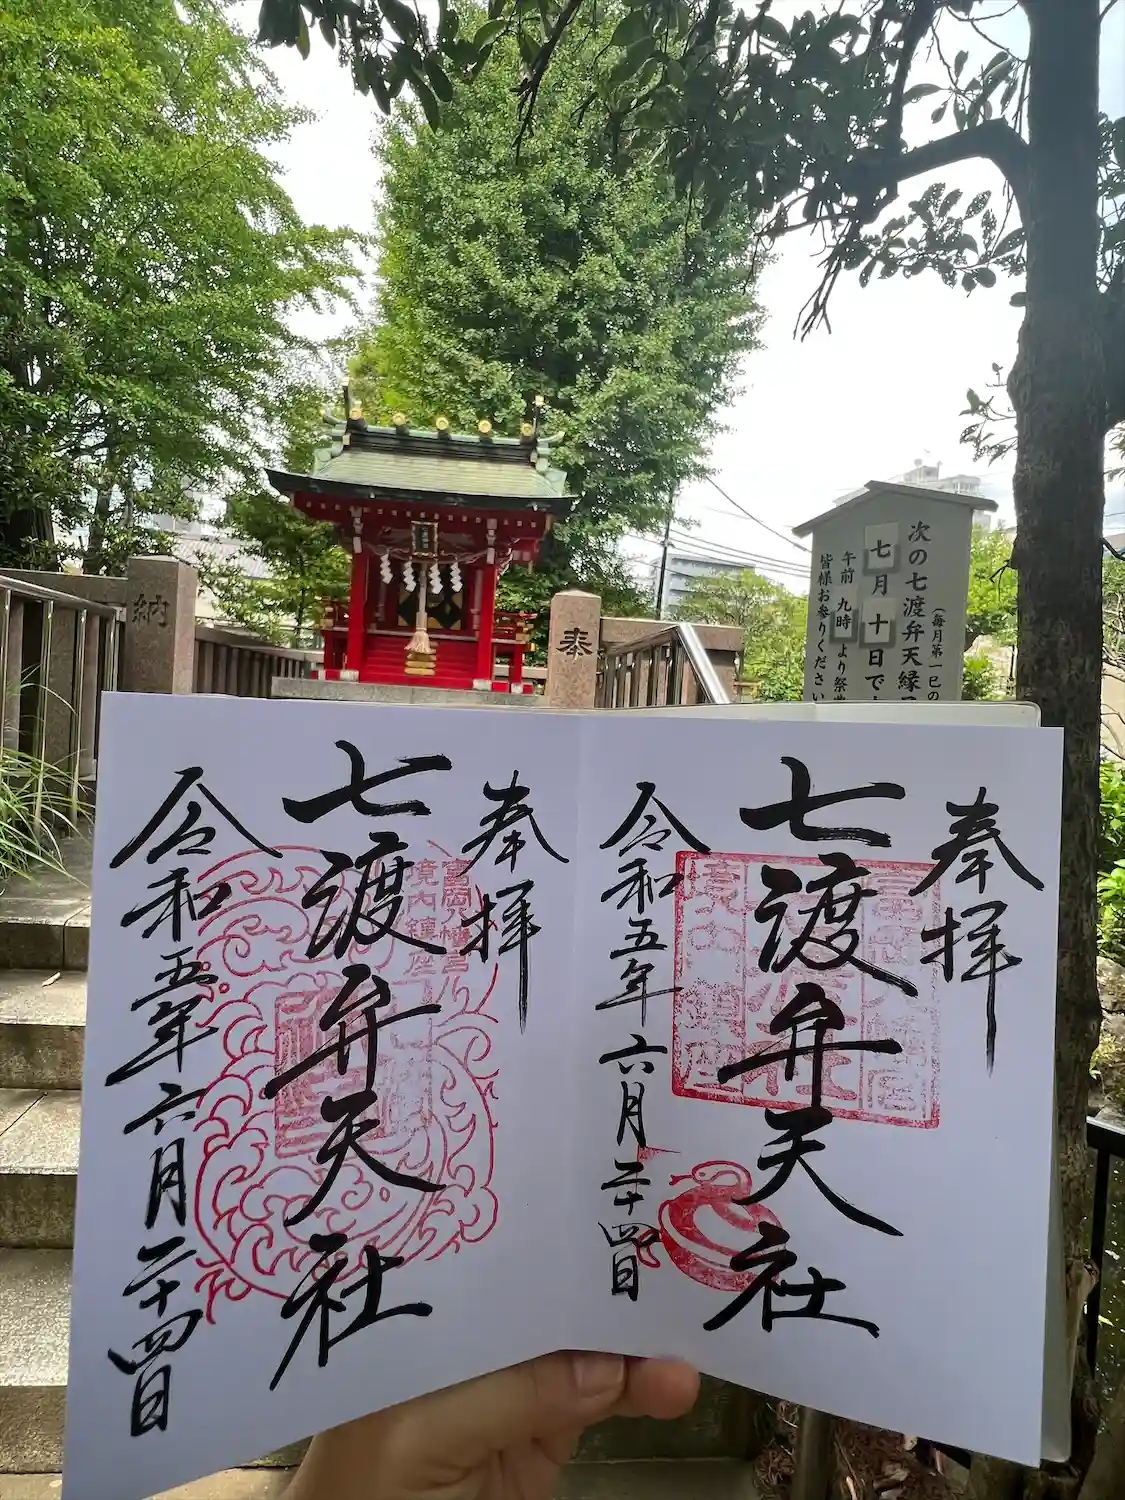 納
奉
次の七渡弁天縁
(毎月第一巳の
七月十日で
午前九時より祭
皆様お参りください
奉拝
七渡弁天社
令和五年六月二十四日
富岡八幡宮
境内鎮座
奉拝
七渡弁天社
令和五年六月二十四日
富岡八幡宮
境内鎮座